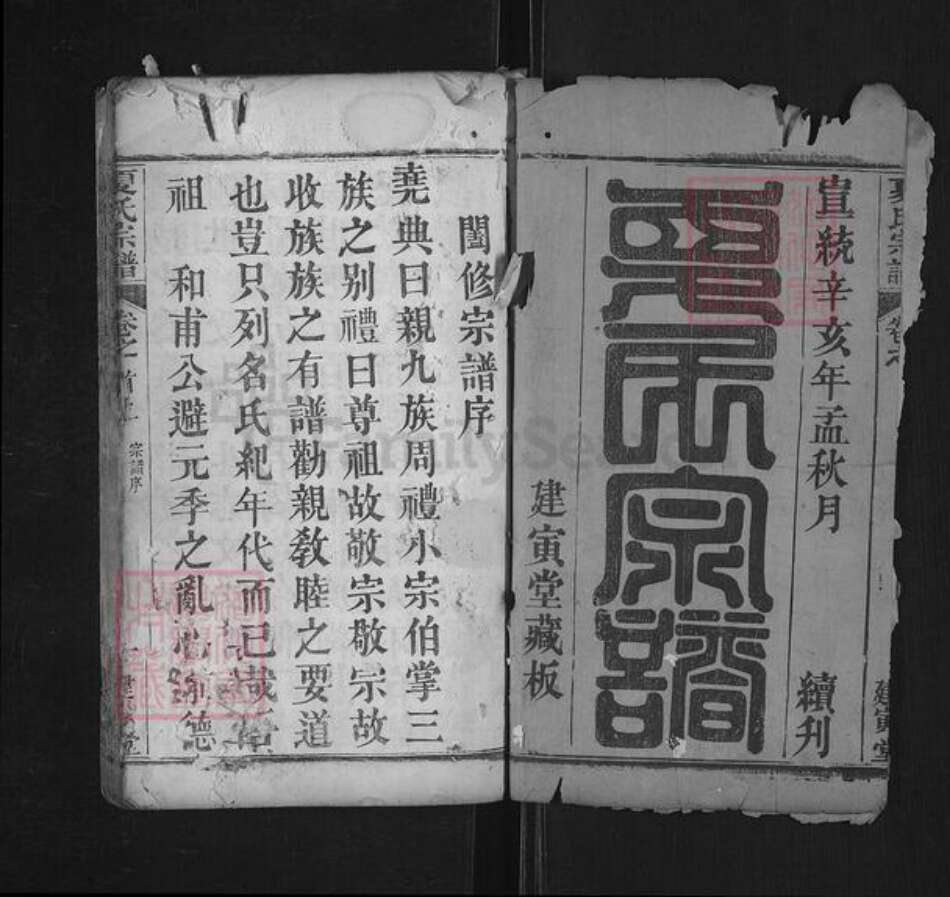 宣統辛亥年孟秋月
續刋
夏氏宗譜
建寅堂藏板
夏氏宗譜
建寅堂
閭修宗譜序
堯典曰親九族周禮小宗伯掌三
族之别禮曰尊祖故敬宗敬宗故
收族族之有譜勸親敎睦之要道
也豈只列名氏紀年代而已哉
祖　和甫公避元季之亂 德
夏氏宗譜
卷之首上
宗譜序
FamilySearch